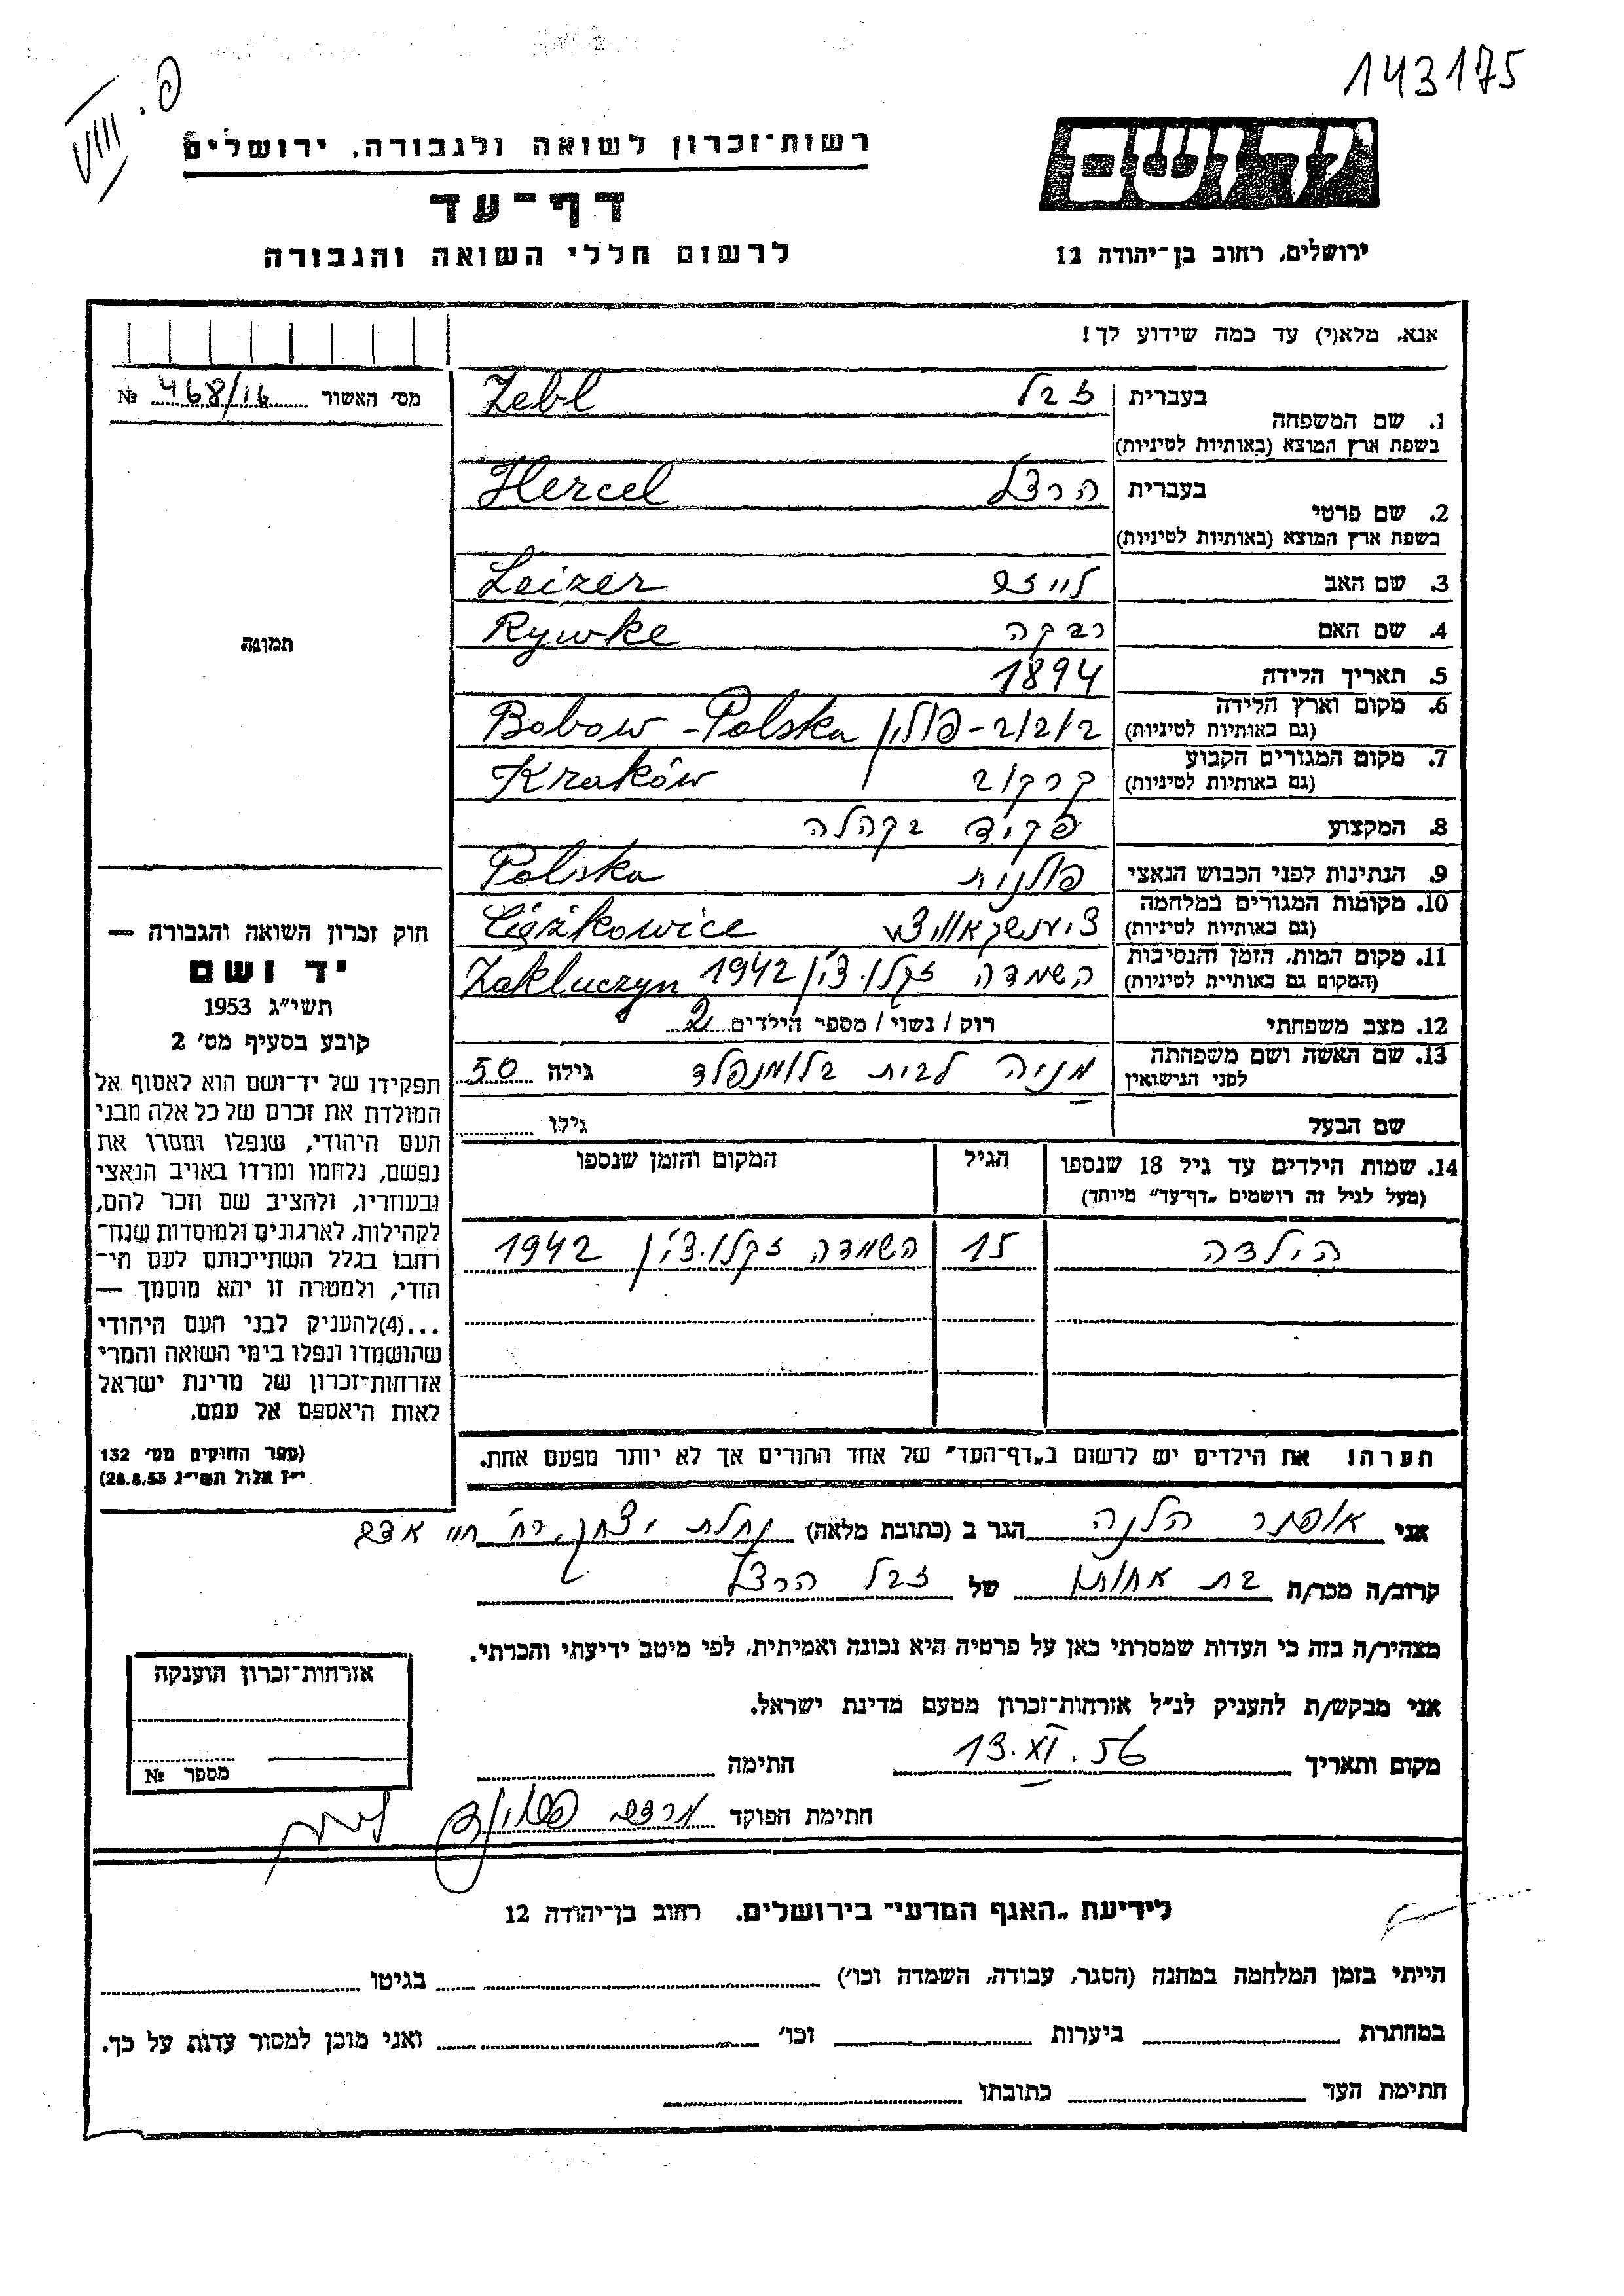 143175
פ. VIII
יד ושם
ירושלים, רחוב בן־יהודה 12
רשות־זכרון לשואה ולגבורה, ירושלים
דף־עד
לרשום חללי השואה והגבורה
אנא, מלא(י) עד כמה שידוע לך!
מס׳ האשור 468/16 №
תמונה
1. שם המשפחה בעברית זבל Zebl
בשפת ארץ המוצא (באותיות לטיניות)
2. שם פרטי בעברית הרצל Hercel
בשפת ארץ המוצא (באותיות לטיניות)
3. שם האב לייזר Leizer
4. שם האם רבקה Rywke
5. תאריך הלידה 1894
6. מקום וארץ הלידה בובוב - פולין Bobow - Polska
(גם באותיות לטיניות)
7. מקום המגורים הקבוע קרקוב Kraków
(גם באותיות לטיניות)
8. המקצוע פקיד בקהלה
9. הנתינות לפני הכבוש הנאצי פולנית Polska
10. מקומות המגורים במלחמה Ciężkowice
(גם באותיות לטיניות)
11. מקום המות, הזמן והנסיבות השמדה זקלוצ׳ין 1942 Zakluczyn
(המקום גם באותיות לטיניות)
12. מצב משפחתי רוק / נשוי / מספר הילדים 2
13. שם האשה ושם משפחתה מניה לבית בלומנפלד גילה 50
לפני הנישואין
שם הבעל גילו
14. שמות הילדים עד גיל 18 שנספו הגיל המקום והזמן שנספו
(מעל לגיל זה רושמים „דף־עד״ מיוחד)
הילדה 15 השמדה זקלוצ׳ין 1942
הערה! את הילדים יש לרשום ב„דף־העד״ של אחד ההורים אך לא יותר מפעם אחת.
חוק זכרון השואה והגבורה —
יד ושם
תשי״ג 1953
קובע בסעיף מס׳ 2
תפקידו של יד־ושם הוא לאסוף אל
המולדת את זכרם של כל אלה מבני
העם היהודי, שנפלו ומסרו את
נפשם, נלחמו ומרדו באויב הנאצי
ובעוזריו, ולהציב שם וזכר להם,
לקהילות, לארגונים ולמוסדות שנח־
רבו בגלל השתייכותם לעם הי־
הודי, ולמטרה זו יהא מוסמך —
...(4)להעניק לבני העם היהודי
שהושמדו ונפלו בימי השואה והמרי
אזרחות־זכרון של מדינת ישראל
לאות היאספם אל עמם.
(ספר החוקים מס׳ 132
י״ז אלול תשי״ג 28.8.53)
אני אופתר הלנה הגר ב (כתובת מלאה) נחלת יצחק, רח׳ חיי אדם
קרוב/ה מכר/ה בת אחותו של זבל הרצל
מצהיר/ה בזה כי העדות שמסרתי כאן על פרטיה היא נכונה ואמיתית, לפי מיטב ידיעתי והכרתי.
אני מבקש/ת להעניק לנ״ל אזרחות־זכרון מטעם מדינת ישראל.
מקום ותאריך 13.XI.56 חתימה
חתימת הפוקד
אזרחות־זכרון הוענקה
מספר №
לידיעת „האגף המדעי״ בירושלים. רחוב בן־יהודה 12
הייתי בזמן המלחמה במחנה (הסגר, עבודה, השמדה וכו׳) בגיטו
במחתרת ביערות וכו׳ ואני מוכן למסור עדות על כך.
חתימת העד כתובתו